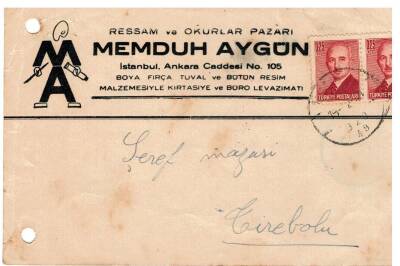 RESSAM ve OKURLAR PAZARI
MEMDUH AYGÜN
İstanbul, Ankara Caddesi No. 105
BOYA FIRÇA TUVAL ve BÜTÜN RESİM
MALZEMESİYLE KIRTASİYE ve BÜRO LEVAZIMATI
MA
TÜRKİYE POSTALARI
TÜRKİYE POSTALARI
Şeref mağasi
Tirebolu